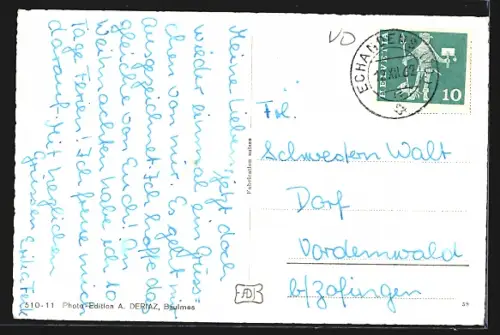 Meine Lieben, jetzt doch
wieder einmal ein Grüss=
chen von mir. Es geht mir
ausgezeichnet. Ich hoffe das
gleiche von Euch! An
Weihnachten habe ich 10
Tage Ferien! Ich freue mich
darauf. Mit herzlichen
Grüssen
510-11 Photo-Edition A. DERIAZ, Baulmes
Fabrication suisse
AD
VD
ECHANDENS
HELVETIA
10
Frl.
Schwestern Walt
Dorf
Vordemwald
b/Zofingen